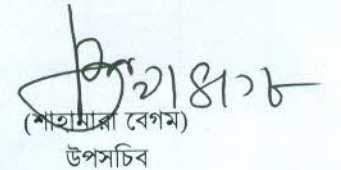 ২১৪।১৮
(শাহানারা বেগম)
উপসচিব